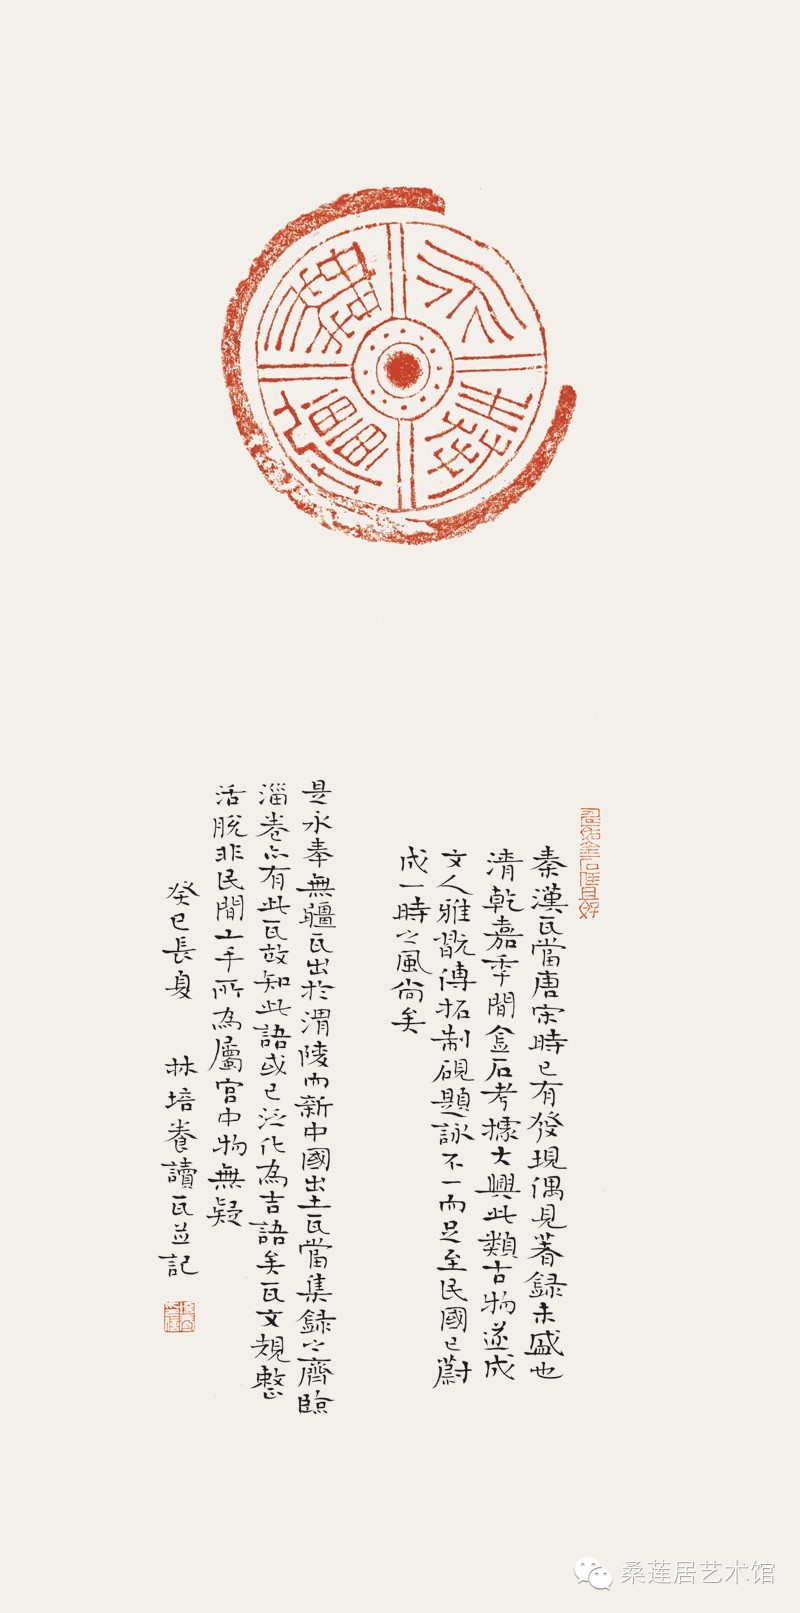 永奉無疆
秦漢瓦當唐宋時已有發現偶見著録未盛也
清乾嘉年間金石考據大興此類古物遂成
文人雅翫傳拓制硯題詠不一而足至民國已蔚
成一時之風尚矣
是永奉無疆瓦出於渭陵而新中國出土瓦當集録之齊臨
淄卷亦有此瓦故知此語或已泛化為吉語矣瓦文規整
活脫非民間工手所為屬官中物無疑
癸巳長夏 林培養讀瓦並記
桑莲居艺术馆